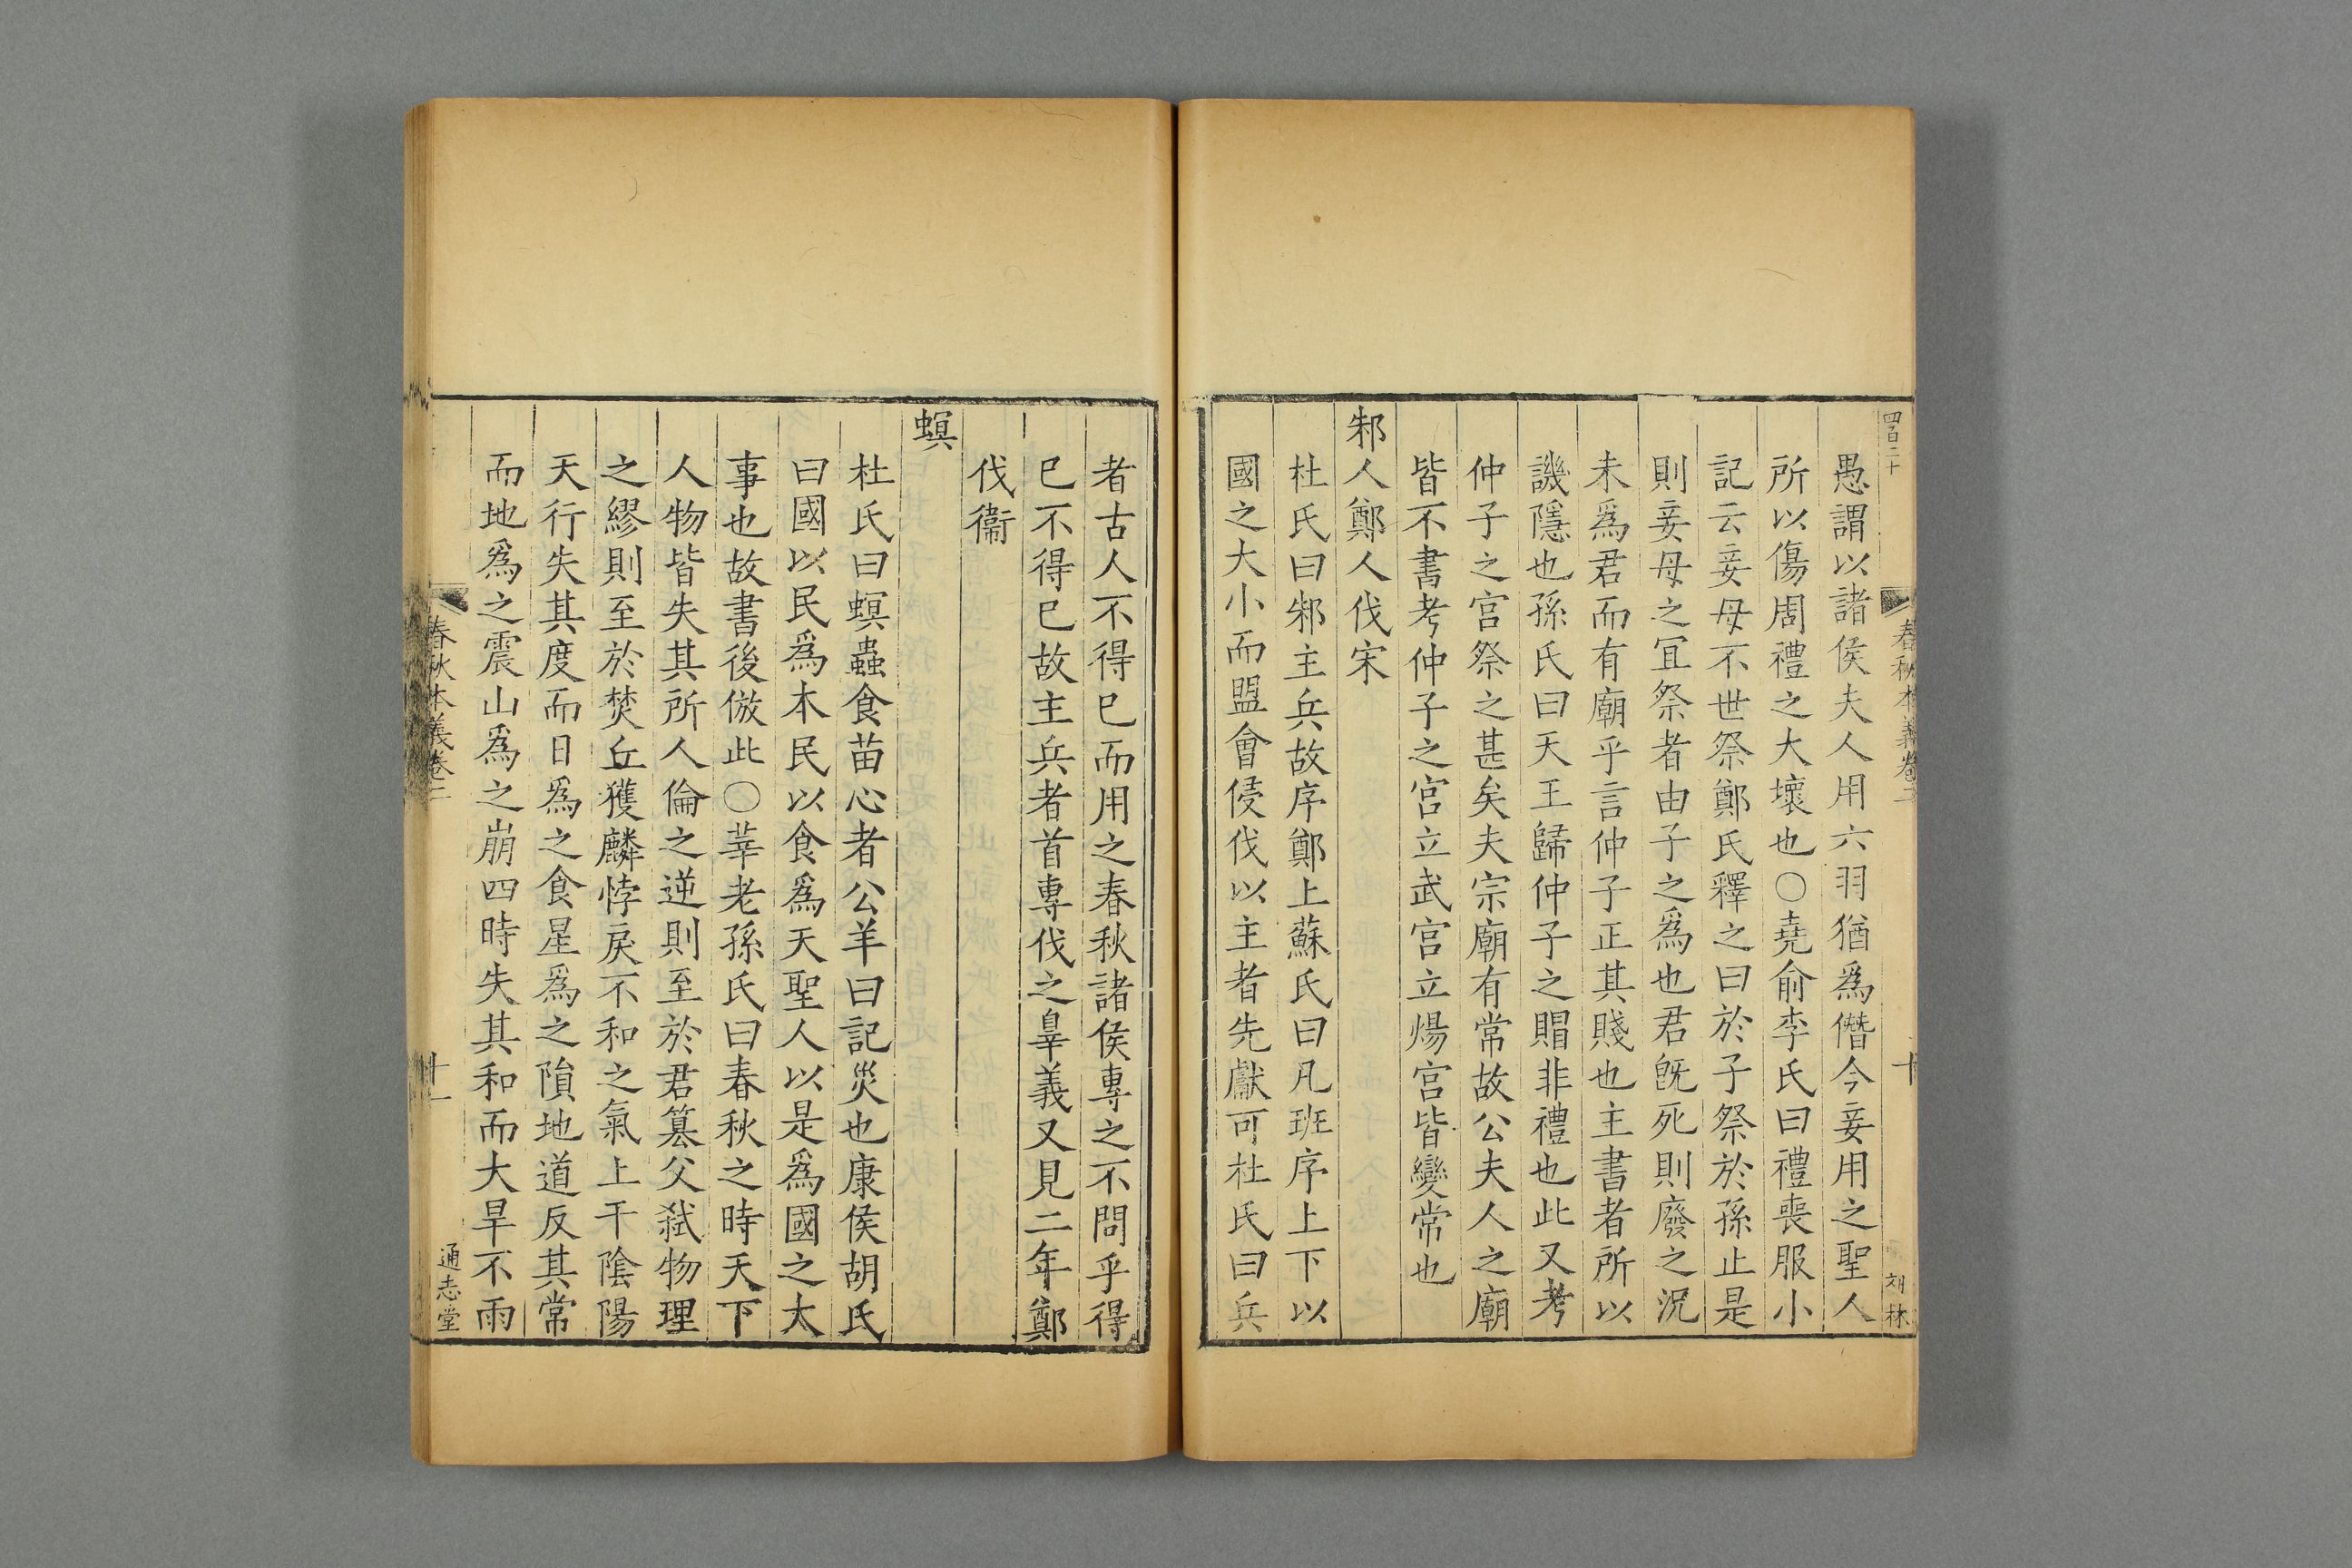 四百二十
春秋本義卷二
十
刘林
愚謂以諸侯夫人用六羽猶爲僭今妾用之聖人
所以傷周禮之大壞也〇堯俞李氏曰禮喪服小
記云妾母不世祭鄭氏釋之曰於子祭於孫止是
則妾母之冝祭者由子之爲也君旣死則廢之況
未爲君而有廟乎言仲子正其賤也主書者所以
譏隱也孫氏曰天王歸仲子之賵非禮也此又考
仲子之宫祭之甚矣夫宗廟有常故公夫人之廟
皆不書考仲子之宫立武宫立煬宫皆變常也
邾人鄭人伐宋
杜氏曰邾主兵故序鄭上蘇氏曰凡班序上下以
國之大小而盟會侵伐以主者先獻可杜氏曰兵
者古人不得已而用之春秋諸侯專之不問乎得
已不得已故主兵者首專伐之辠義又見二年鄭
伐衞
螟
杜氏曰螟蟲食苗心者公羊曰記災也康侯胡氏
曰國以民爲本民以食爲天聖人以是爲國之大
事也故書後倣此〇莘老孫氏曰春秋之時天下
人物皆失其所人倫之逆則至於君簒父弑物理
之繆則至於焚丘獲麟悖戾不和之氣上干陰陽
天行失其度而日爲之食星爲之隕地道反其常
而地爲之震山爲之崩四時失其和而大旱不雨
春秋本義卷二
十一
通志堂